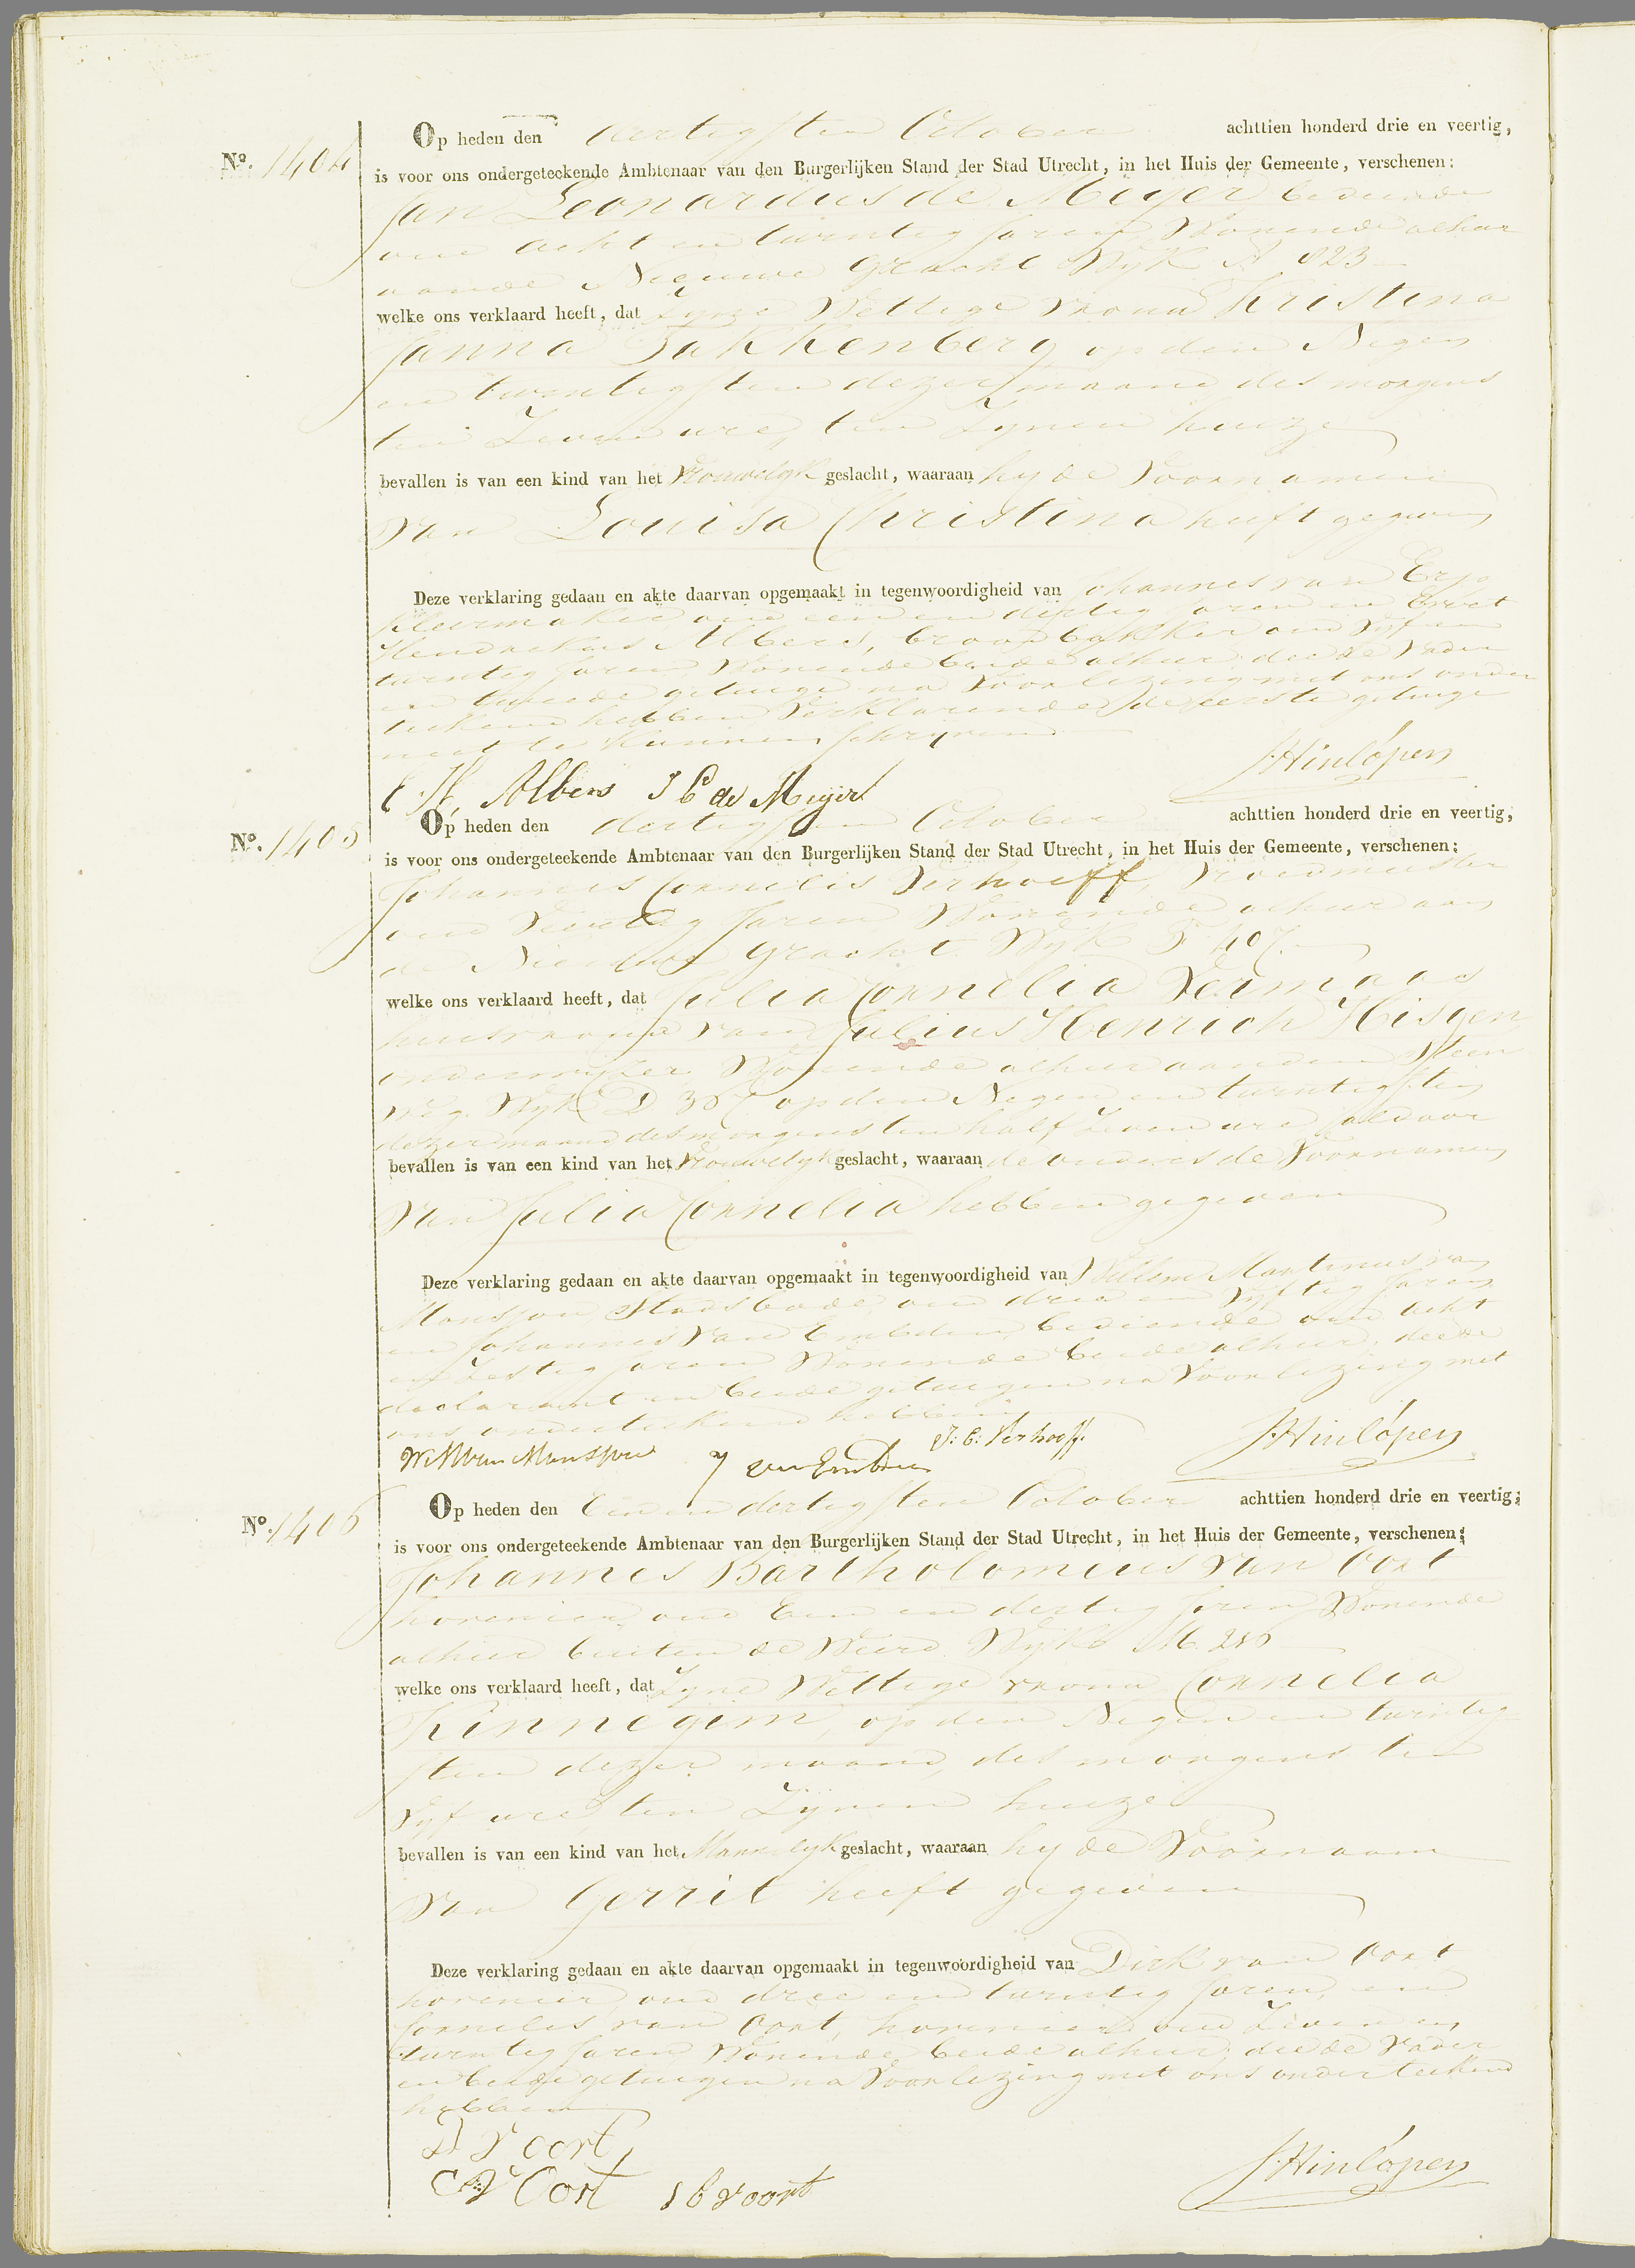 Nº. 1404
Op heden den dertigsten October achttien honderd drie en veertig,
is voor ons ondergeteekende Ambtenaar van den Burgerlijken Stand der Stad Utrecht, in het Huis der Gemeente, verschenen:
Jan Leonardus de Meyer bediende
oud acht en twintig jaren Wonende alhier
aan de Nieuwe Gracht Wyk A 823
welke ons verklaard heeft, dat Zyne Wettige vrouw Kristina
Janna Takkenberg op den Negen
en twintigsten dezer maand des morgens
ten Zeven ure, ten Zynen huize
bevallen is van een kind van het Vrouwelyk geslacht, waaraan hy de Voornamen
van Louisa Christina heeft gegeven
Deze verklaring gedaan en akte daarvan opgemaakt in tegenwoordigheid van Johannes van Erp
kleermaker oud een en dertig jaren en Evert
Hendrikus Albers, broodbakker oud vyf en
twintig jaren Wonende beide alhier, die de vader
en tweede getuige na Voorlezing met ons onder
teekend hebben Verklarende de eerste getuige
niet te kunnen schryven
E H. Albers J L de Meijer JHinlópen
Nº. 1405
Op heden den dertigsten October achttien honderd drie en veertig,
is voor ons ondergeteekende Ambtenaar van den Burgerlijken Stand der Stad Utrecht, in het Huis der Gemeente, verschenen:
Johannes Cornelis Verhoeff, Vroedmeester
oud Veertig jaren Wonende alhier aan
de Nieuwe gracht Wyk F 407.
welke ons verklaard heeft, dat Julia Cornelia Vermaas
huisvrouw van Julius Henrich Hisgen
onderwyzer Wonende alhier aan den Steen
weg Wyk D 367 op den Negen en twintigsten
dezer maand des morgens ten half Zeven ure aldaar
bevallen is van een kind van het Vrouwelyk geslacht, waaraan de ouders de Voornamen
van Julia Cornelia hebben gegeven
Deze verklaring gedaan en akte daarvan opgemaakt in tegenwoordigheid van Willem Martinus van
Mansjou, Stadsbode, oud drie en vyftig jaren
en Johannes van Embden, bediende oud acht
en Zestig jaren Wonende beide alhier, die de
declarant en beide getuigen na Voorlezing met
ons onderteekend hebben
J: C: Verhoeff. JHinlópen
J van Embden
Nº. 1406
Op heden den Een en dertigsten October achttien honderd drie en veertig;
is voor ons ondergeteekende Ambtenaar van den Burgerlijken Stand der Stad Utrecht, in het Huis der Gemeente, verschenen:
Johannes Bartholomeus van Oort
hovenier, oud Een en dertig jaren Wonende
alhier buiten de Weerd Wyk M 286
welke ons verklaard heeft, dat Zyne Wettige vrouw Cornelia
Kinnegim, op den Negen en twintig
sten dezer maand, des morgens ten
Vyf ure, ten Zynen huize
bevallen is van een kind van het Mannelyk geslacht, waaraan hy de Voornaam
van Gerrit heeft gegeven
Deze verklaring gedaan en akte daarvan opgemaakt in tegenwoordigheid van Dirk van Oort
hovenier, oud drie en twintig jaren, en
Cornelis van Oort, hovenier oud Zeven en
twintig jaren Wonende beide alhier, die de Vader
en beide getuigen na Voorlezing met ons onderteekend
hebben
D V oort,
C V Oort J B V oort JHinlópen